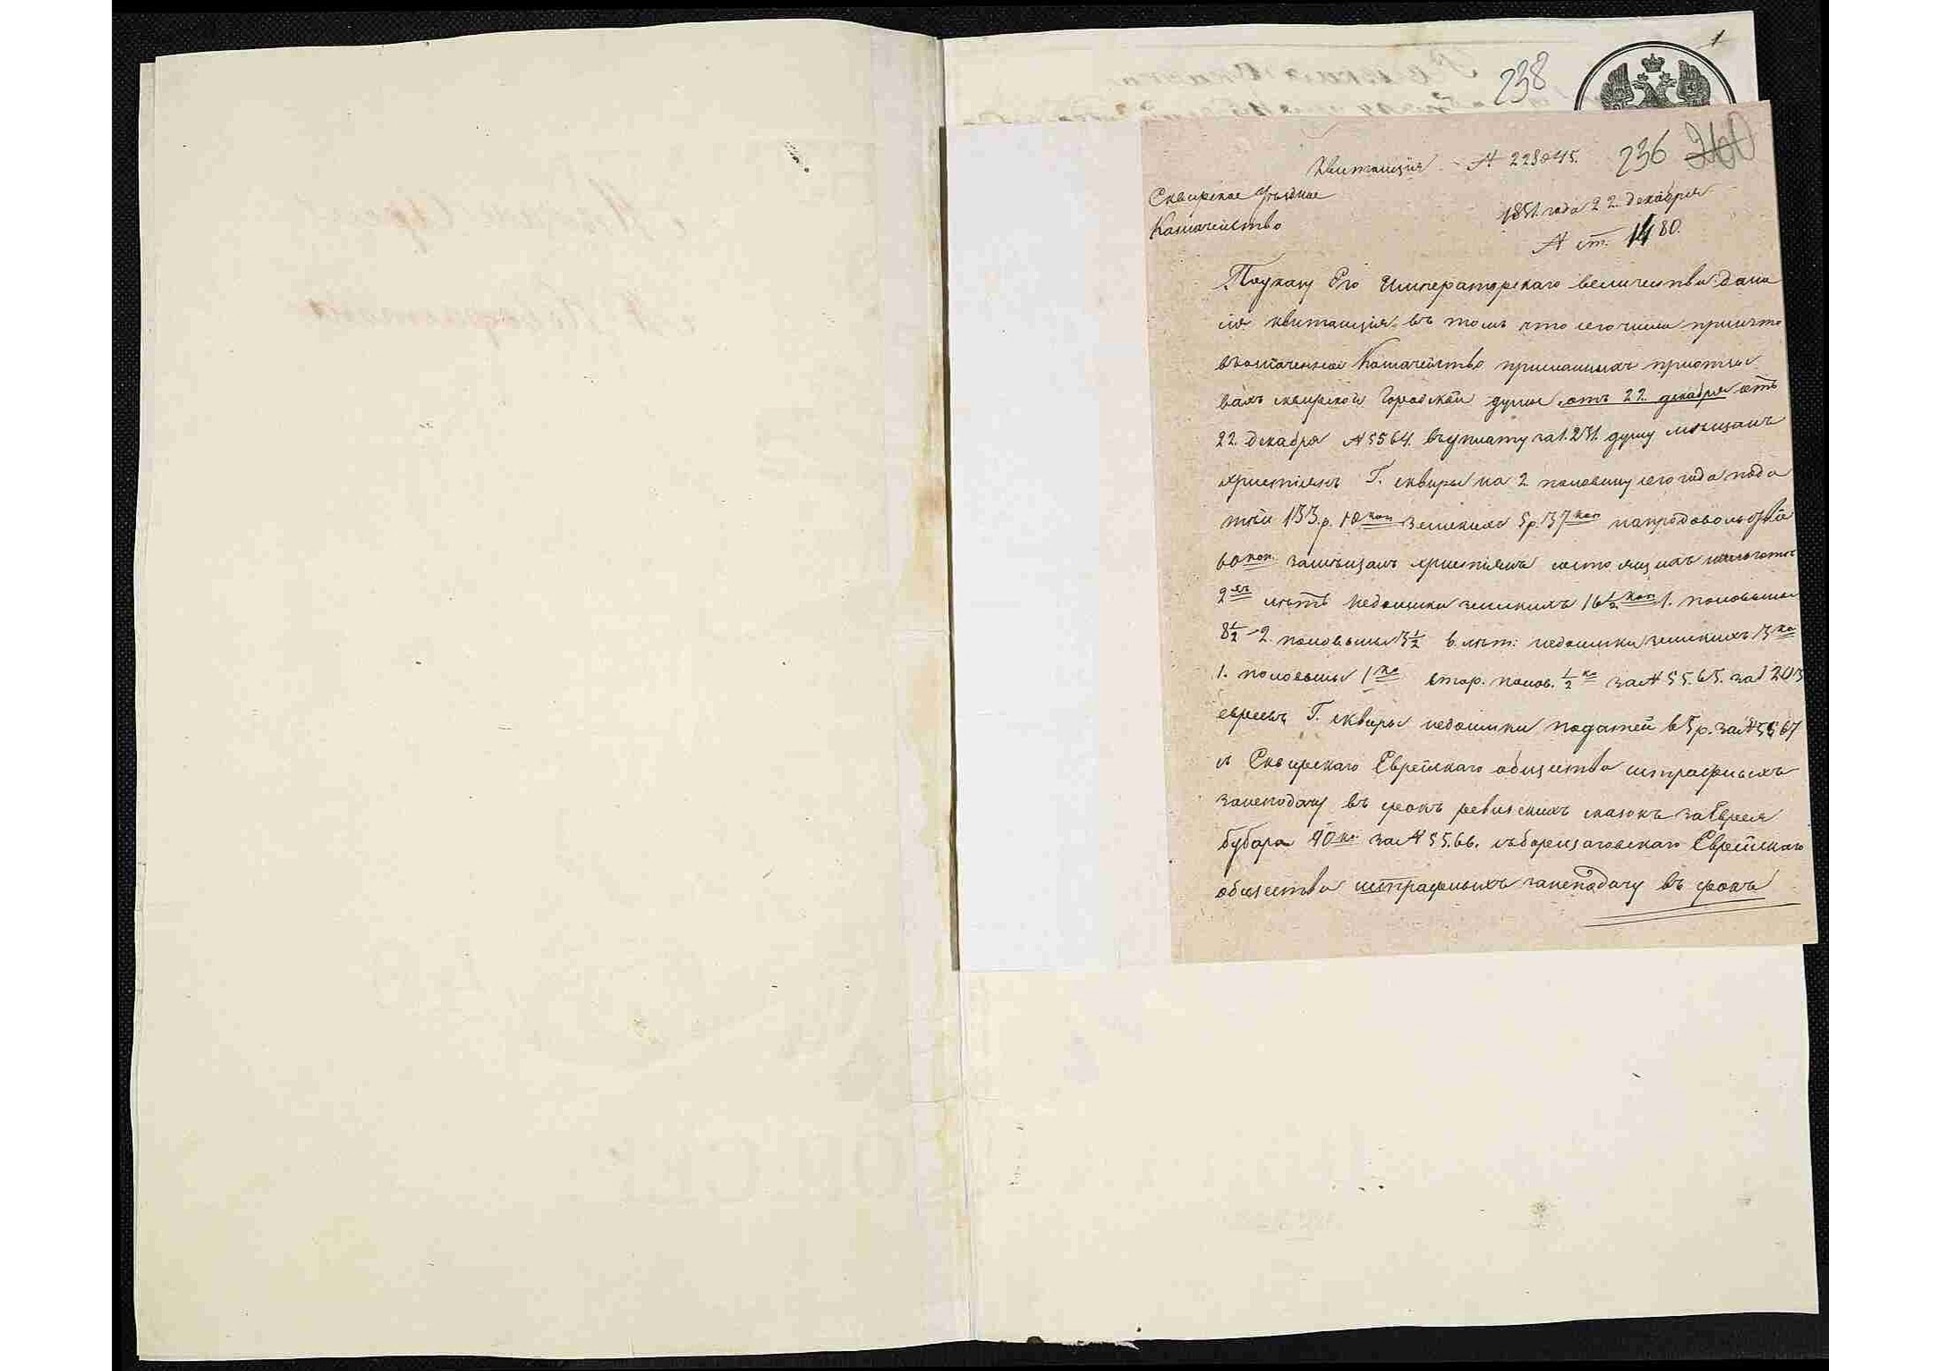 1
238
236 260
Квитанція № 22845.
Сквирское Уѣздное
Казначейство
1851 года 22 декабря
№ ст. 1480.
По указу Его Императорскаго величества дана
сія квитанція въ томъ что сего числа принято
въ означенное Казначейство присланныхъ при отзы
вахъ сквирской Городской думы отъ 22 декабря отъ
22 декабря № 5564. въ уплату за 1.231. душу мѣщанъ
христіянъ Г. сквиры на 2 половину сего года пода
тей 133 р. 10 коп земскихъ 5 р. 37 коп на продовольствіе
60 коп. за мѣщанъ христіянъ состоящихъ
2хъ лѣтъ недоимки земскихъ 16 1/2 коп 1. половины
8 1/2 - 2. половины 3 1/2 6 лѣт: недоимки земскихъ 3 ко
1. половины 1 ко втор. полов. 1/2 ко за № 5565. за 1203
евреевъ Г. сквиры недоимки податей 65 р. за № 5567
съ Сквирскаго Еврейскаго общества штрафныхъ
за неподачу въ срокъ ревизскихъ сказокъ за Еврея
бубара 90 ко за № 5566. съ борщаговскаго Еврейскаго
общества штрафныхъ за неподачу въ срокъ